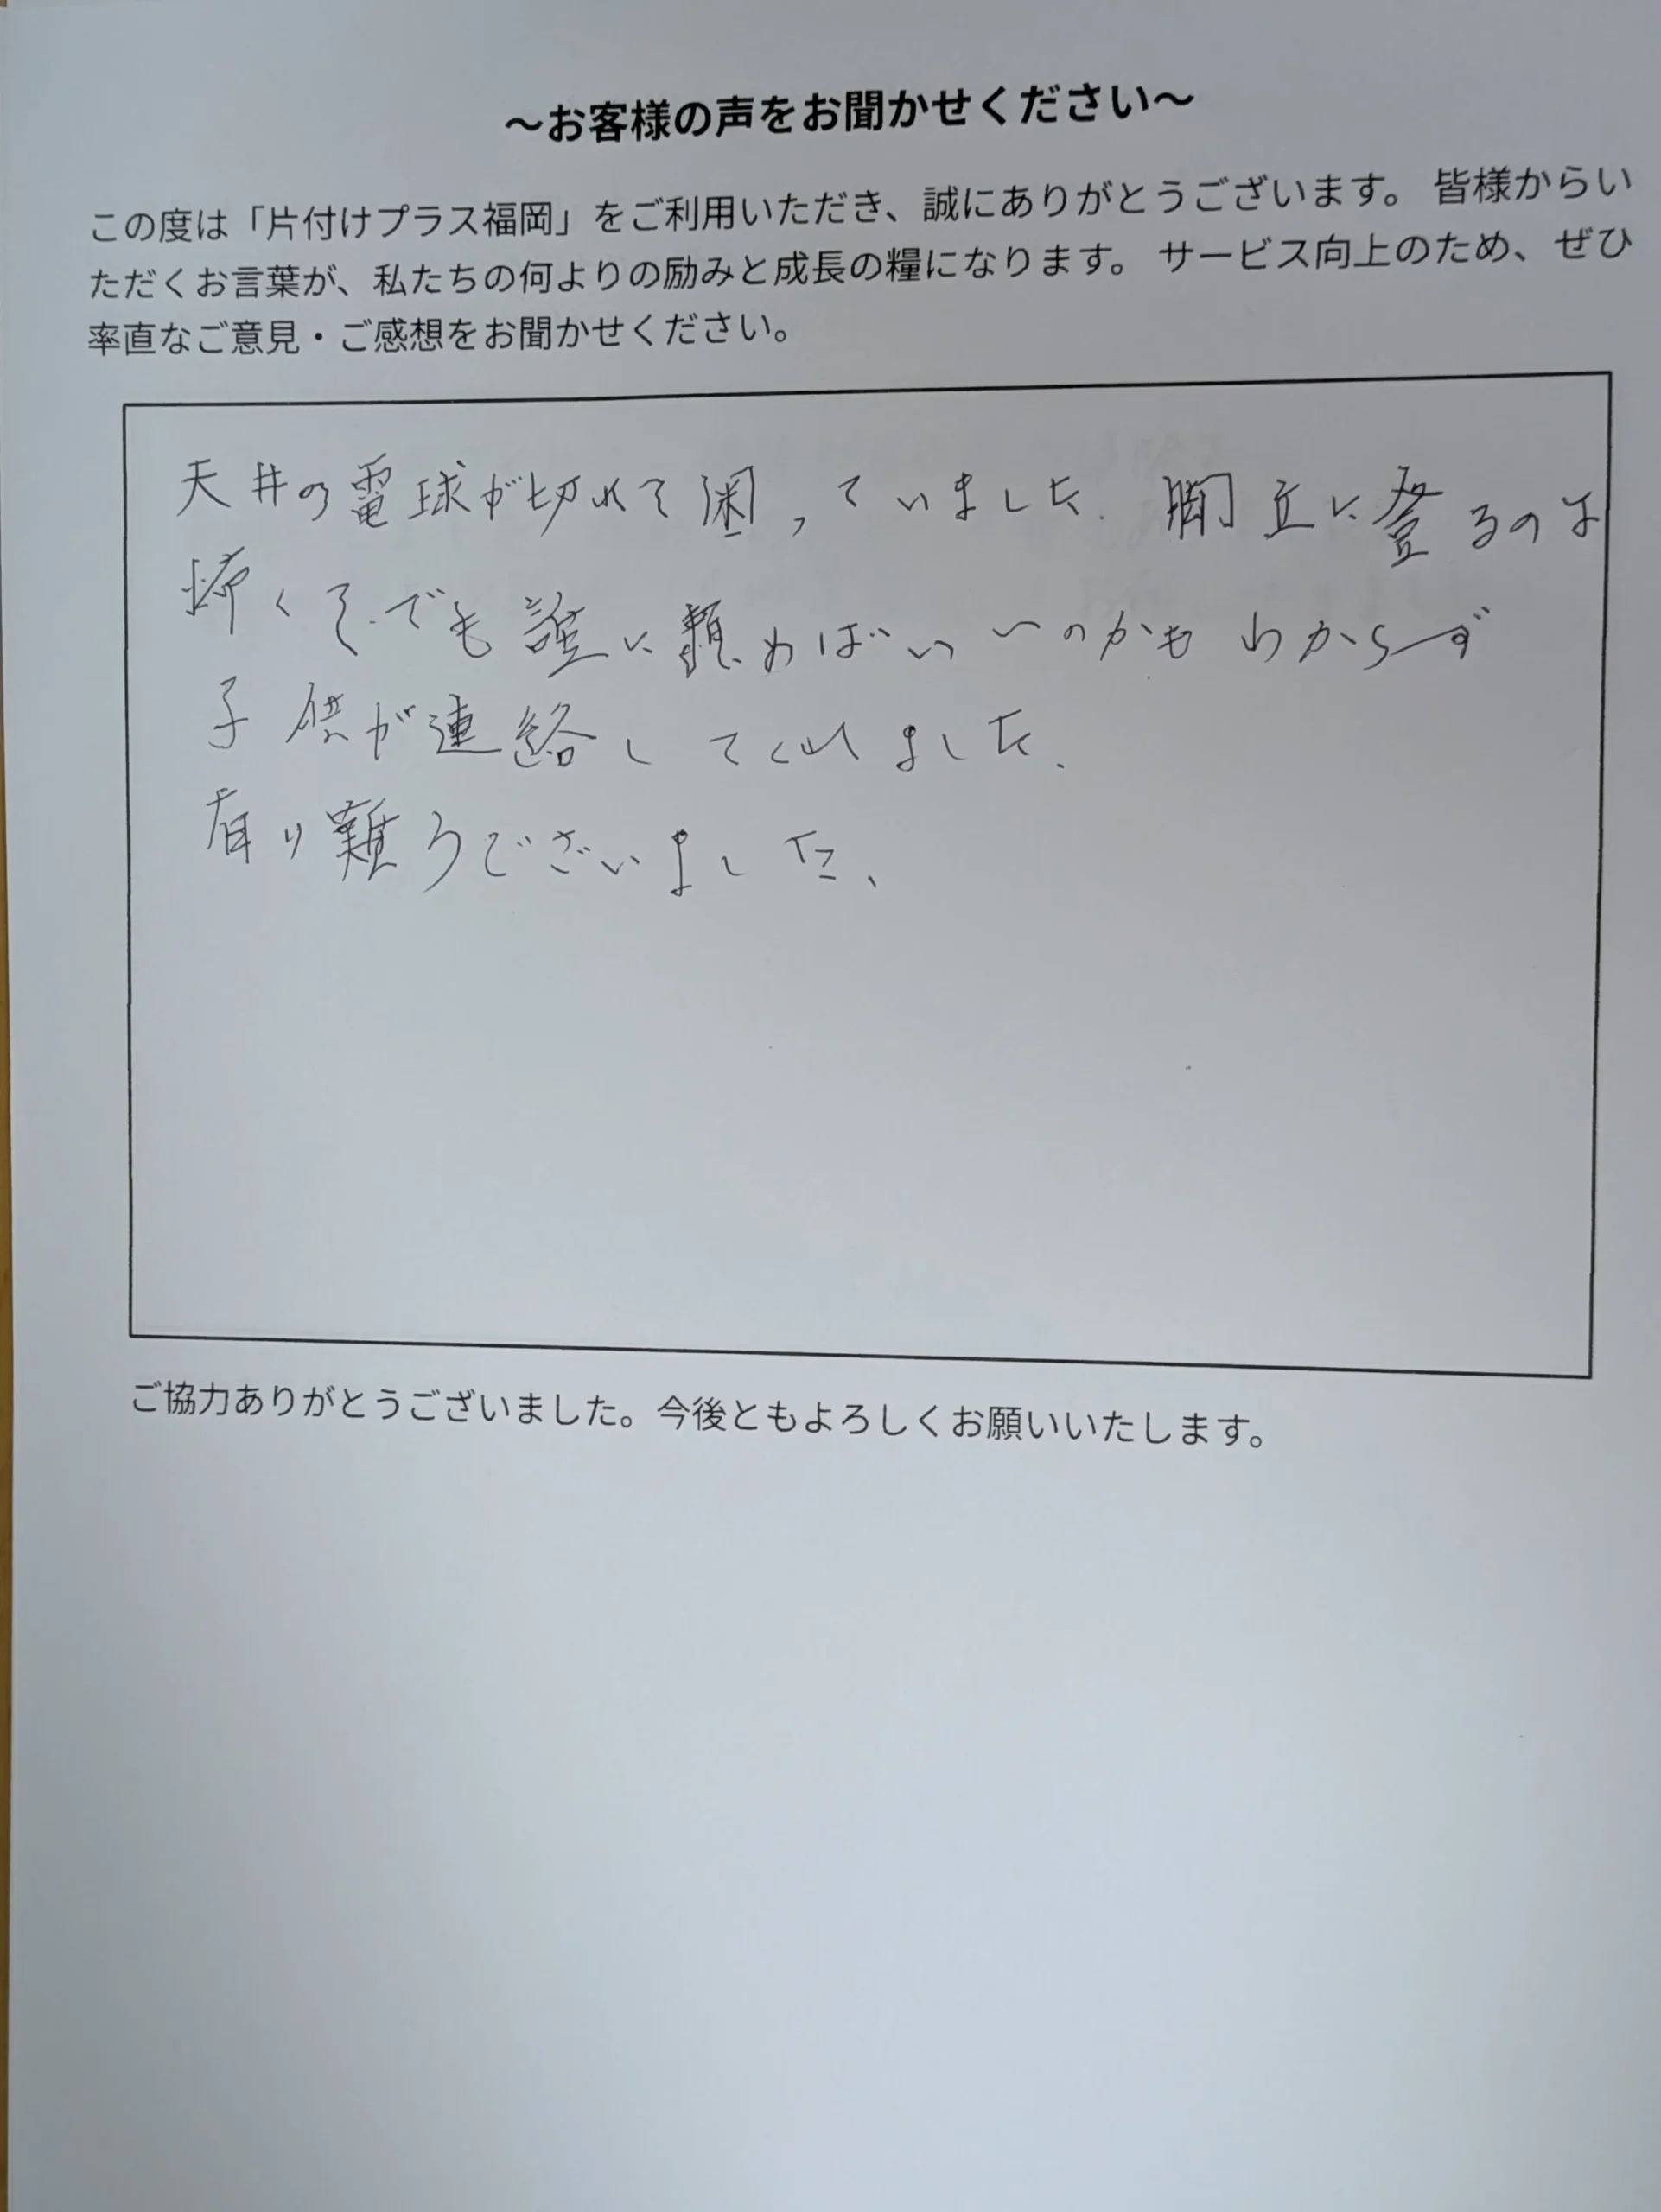 〜お客様の声をお聞かせください〜
この度は「片付けプラス福岡」をご利用いただき、誠にありがとうございます。 皆様からい
ただくお言葉が、私たちの何よりの励みと成長の糧になります。 サービス向上のため、ぜひ
率直なご意見・ご感想をお聞かせください。
天井の電球が切れて困っていました. 脚立に登るのは
怖くて.でも誰に頼めばいいのかもわからず
子供が連絡してくれました.
有り難うございました、
ご協力ありがとうございました。今後ともよろしくお願いいたします。